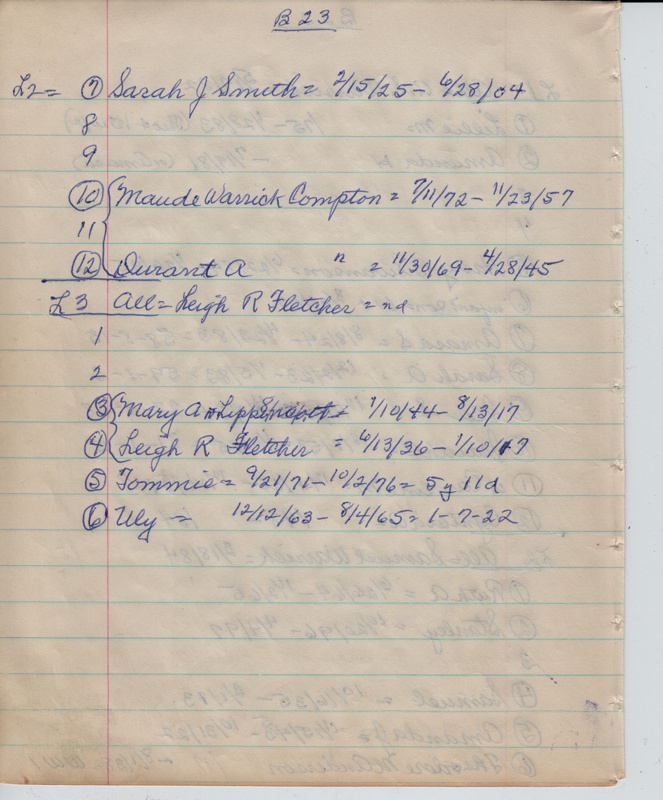 B 23
L2 = 7 Sarah J Smith = 2/15/25 - 6/28/04
8
9
10 Maude Warrick Compton = 7/11/72 - 11/23/57
11
12 Durant A " = 11/30/69 - 4/28/45
L 3 All = Leigh R Fletcher = nd
1
2
3 Mary A = 1/10/44 - 8/13/17
4 Leigh R Fletcher = 6/13/36 - 1/10/17
5 Tommie = 9/21/71 - 10/2/76 = 5 y 11 d
6 Uly = 12/12/63 - 8/4/65 = 1-7-22